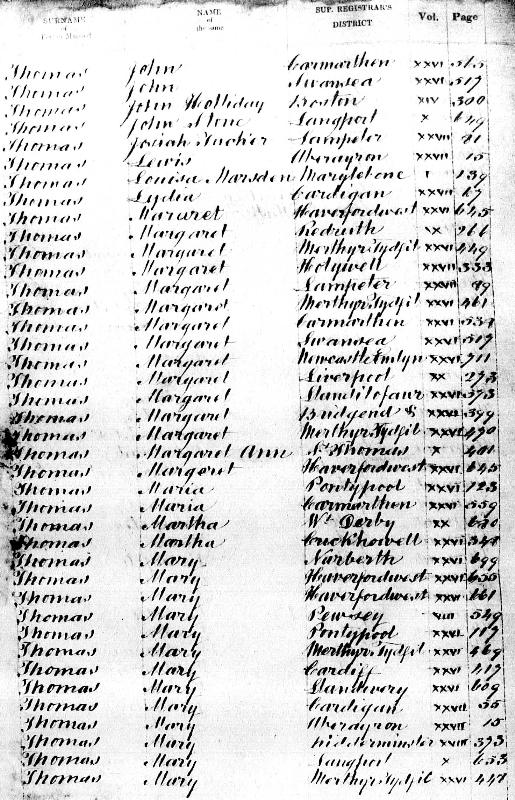 SURNAME NAME SUP. REGISTRAR'S Vol. Page
of of DISTRICT
the same
Thomas John Carmarthen xxvi 515
Thomas John Swansea xxvi 517
Thomas John Holliday Boston xiv 300
Thomas John Stone Langport x 649
Thomas Josiah Tucker Lampeter xxvii 21
Thomas Lewis Aberayron xxvii 15
Thomas Louisa Marsden Marylebone 1 139
Thomas Lydia Cardigan xxvii 67
Thomas Mararet Haverfordwest xxvi 645
Thomas Margaret Redruth ix 266
Thomas Margaret Merthyr Tydfil xxvi 449
Thomas Margaret Holywell xxvii 333
Thomas Margaret Lampeter xxvii 29
Thomas Margaret Merthyr Tydfil xxvi 461
Thomas Margaret Carmarthen xxvi 534
Thomas Margaret Swansea xxvi 517
Thomas Margaret Newcastle Emlyn xxvi 711
Thomas Margaret Liverpool xx 273
Thomas Margaret Llandilofawr xxvi 573
Thomas Margaret Bridgend & xxvi 399
Thomas Margaret Merthyr Tydfil xxvi 470
Thomas Margaret Ann St Thomas x 401
Thomas Margeret Haverfordwest xxvi 645
Thomas Maria Pontypool xxvi 123
Thomas Maria Carmarthen xxvi 559
Thomas Martha Wt Derby xx 630
Thomas Martha Crickhowell xxvi 347
Thomas Mary Narberth xxvi 699
Thomas Mary Haverfordwest xxvi 655
Thomas Mary Haverfordwest xxvi 661
Thomas Mary Pewsey viii 549
Thomas Mary Pontypool xxvi 117
Thomas Mary Merthyr Tydfil xxvi 469
Thomas Mary Cardiff xxvi 417
Thomas Mary Llandovery xxvi 609
Thomas Mary Cardigan xxvii 55
Thomas Mary Aberayron xxvii 15
Thomas Mary Kidderminster xviii 393
Thomas Mary Langport x 653
Thomas Mary Merthyr Tydfil xxvi 447